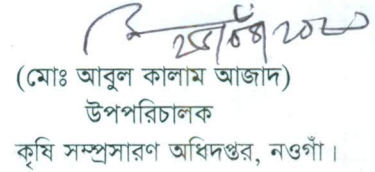 (মোঃ আবুল কালাম আজাদ)
উপপরিচালক
কৃষি সম্প্রসারণ অধিদপ্তর, নওগাঁ।